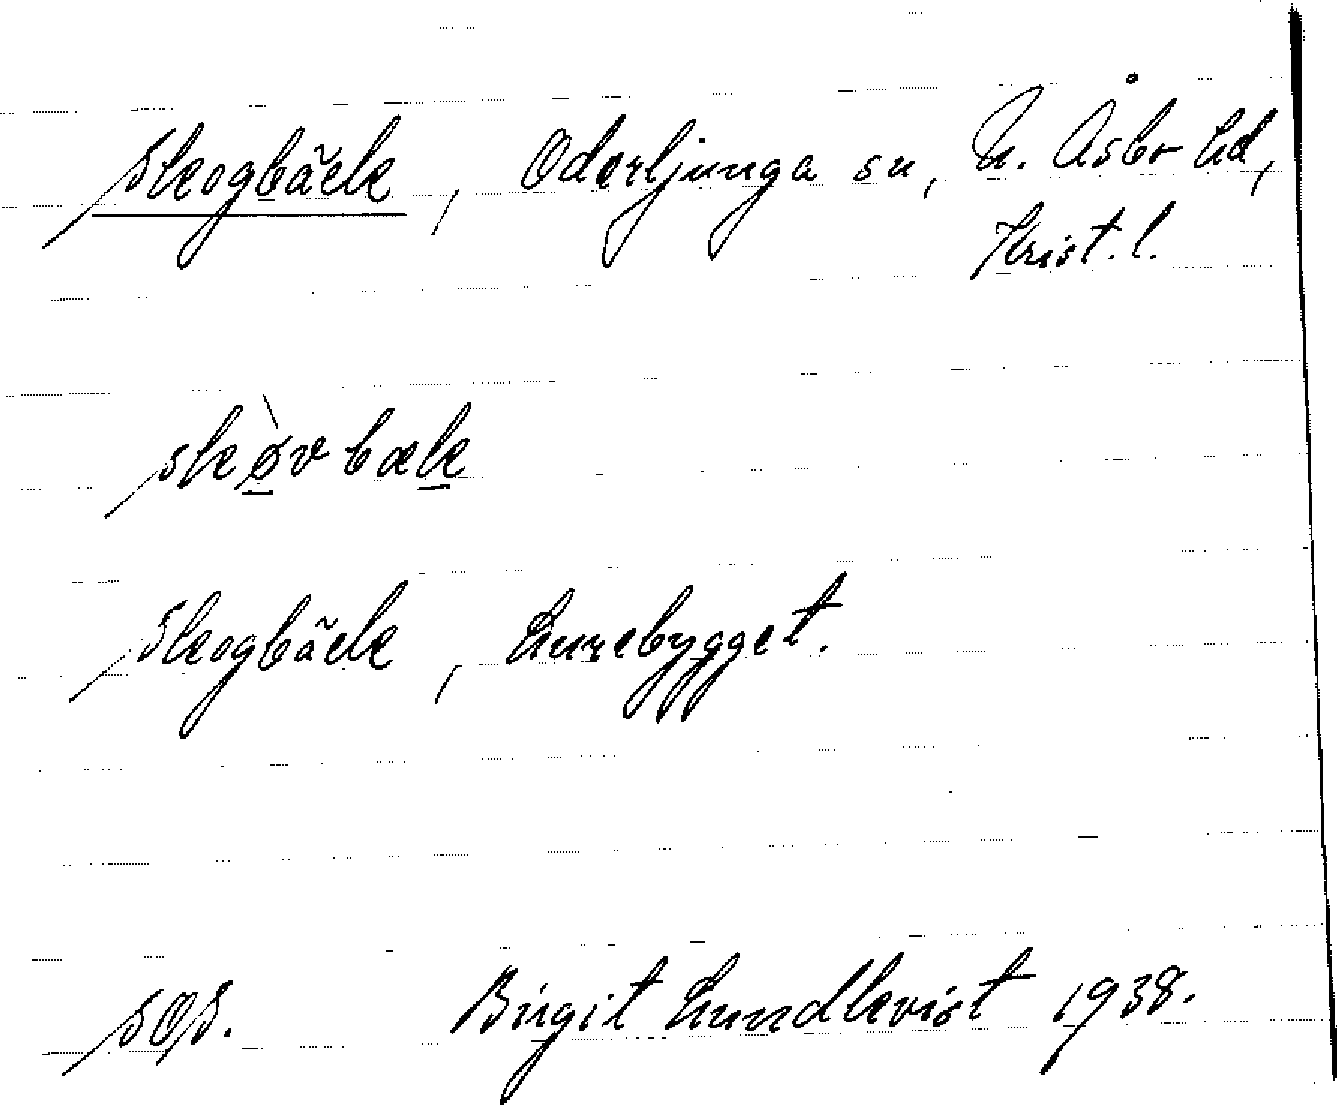 Skogbäck, Oderljunga sn, N. Åsbo hd,
Krist. l.
skø̀vbæk
Skogbäck, Lurebygget.
SOS. Birgit Lundkvist 1938.